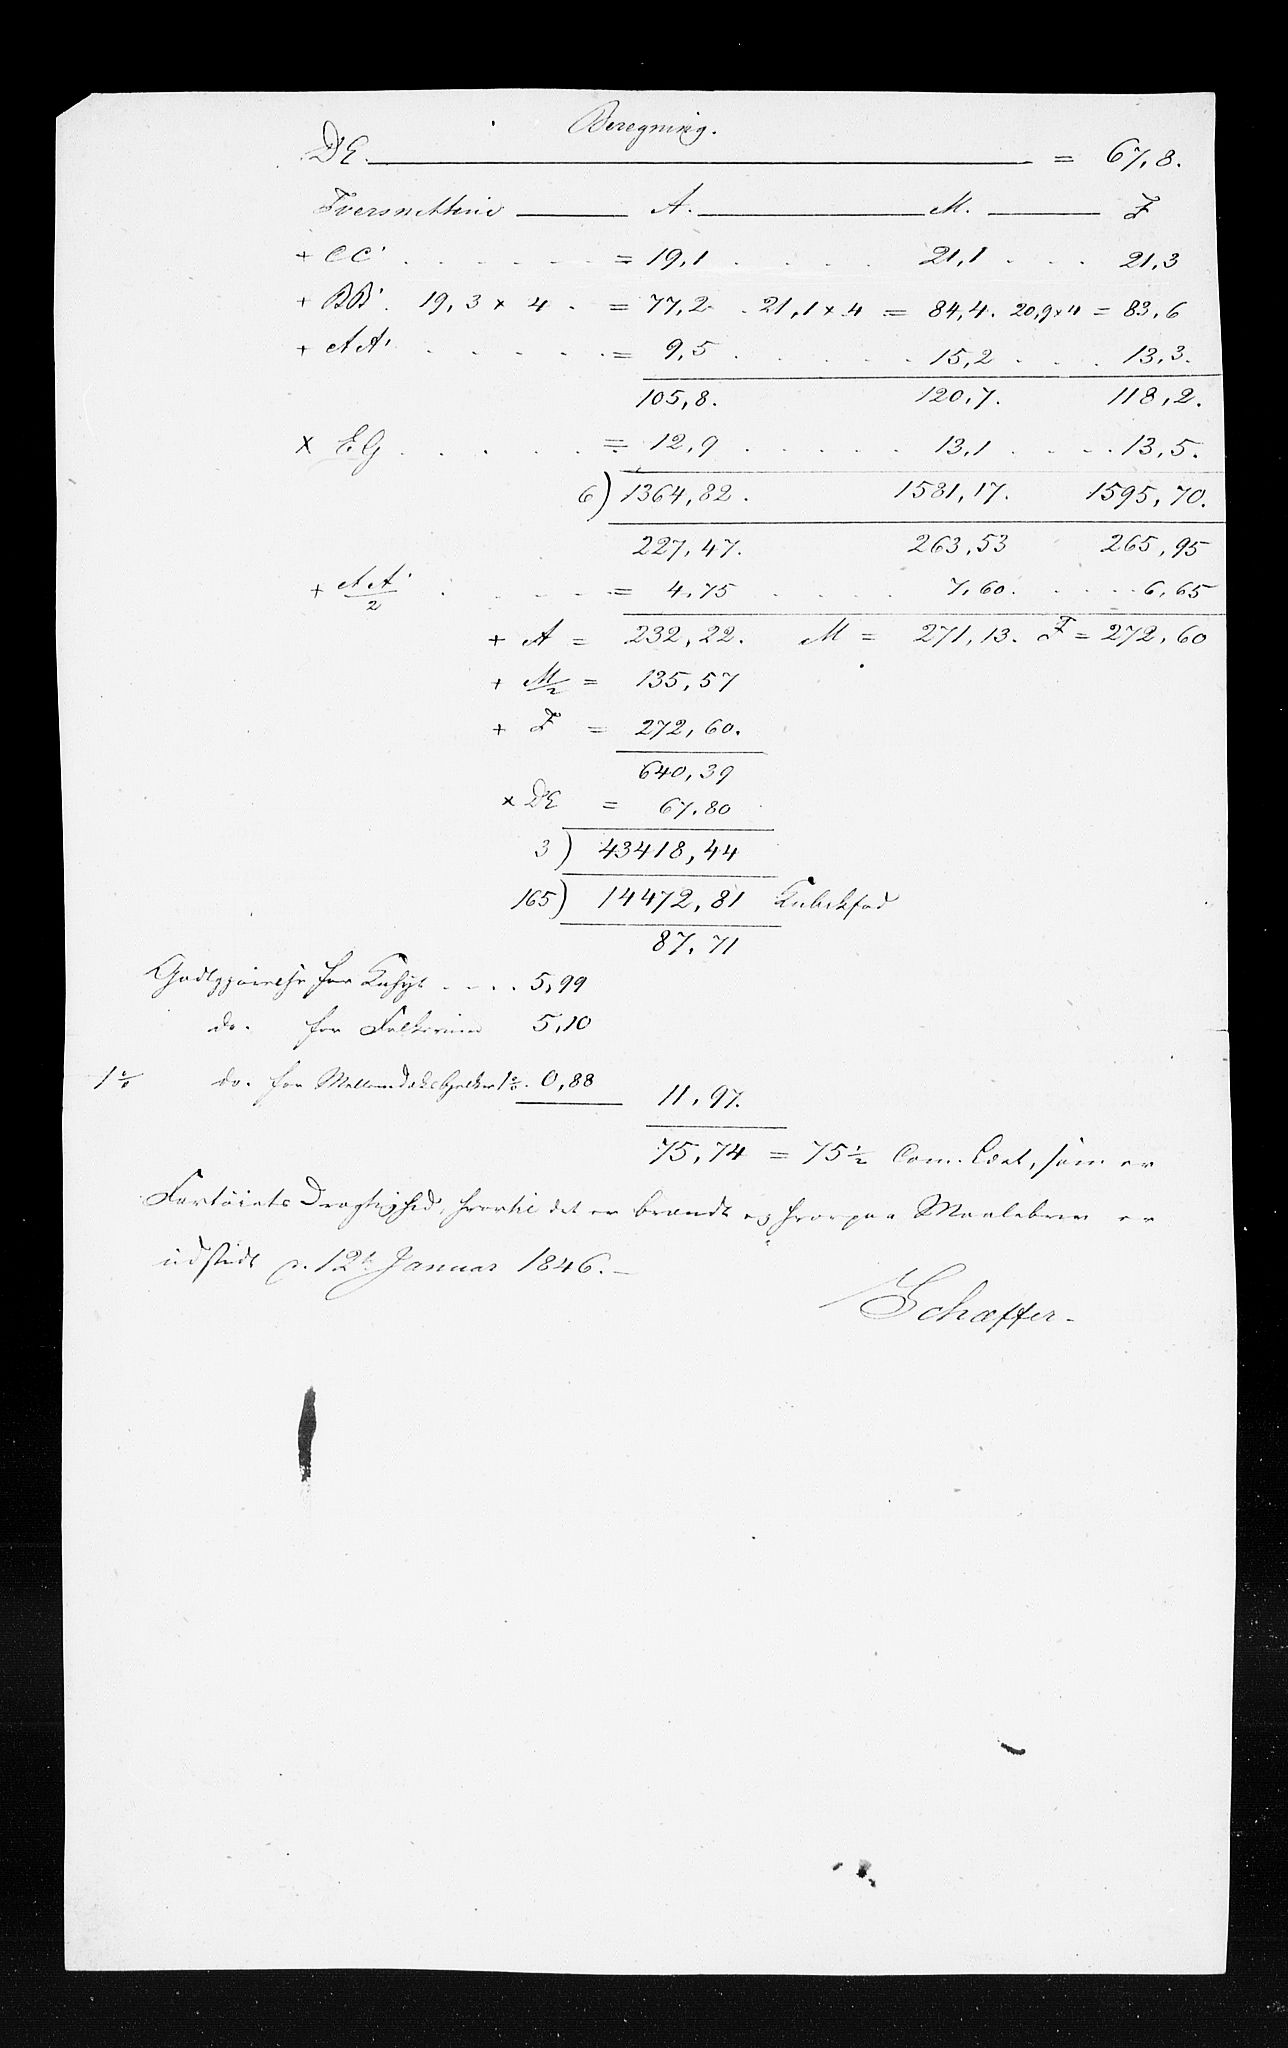 Beregning.
DE. = 67,8.
Tversnittene A. M. F
+ CC' = 19,1 21,1 21,3
+ BB'. 19,3 × 4 = 77,2 21,1 × 4 = 84,4. 20,9 × 4 = 83,6
+ AA' = 9,5 15,2 13,3.
105,8. 120,7. 118,2.
× EG = 12,9 13,1 13,5.
6) 1364,82. 1581,17. 1595,70.
227,47. 263,53 265,95
+ AA'/2 = 4,75 7,60. 6,65
+ A = 232,22. M = 271,13. F = 272,60
+ M/2 = 135,57
+ F = 272,60.
640,39
× DE = 67,80
3) 43418,44
165) 14472,81 Kubikfod
87,71
Godtgjørelse for Kahyt 5,99
do. for Folkerum 5,10
1 % do. for Mellemdeksbjelker 1 %. 0,88 11,97.
75,74 = 75½ Com. Læst, som er
Fartøiets Drægtighed, hvortil det er brændt og hvorpaa Maalebrev er
udstedt d. 12t Januar 1846.
Schæffer